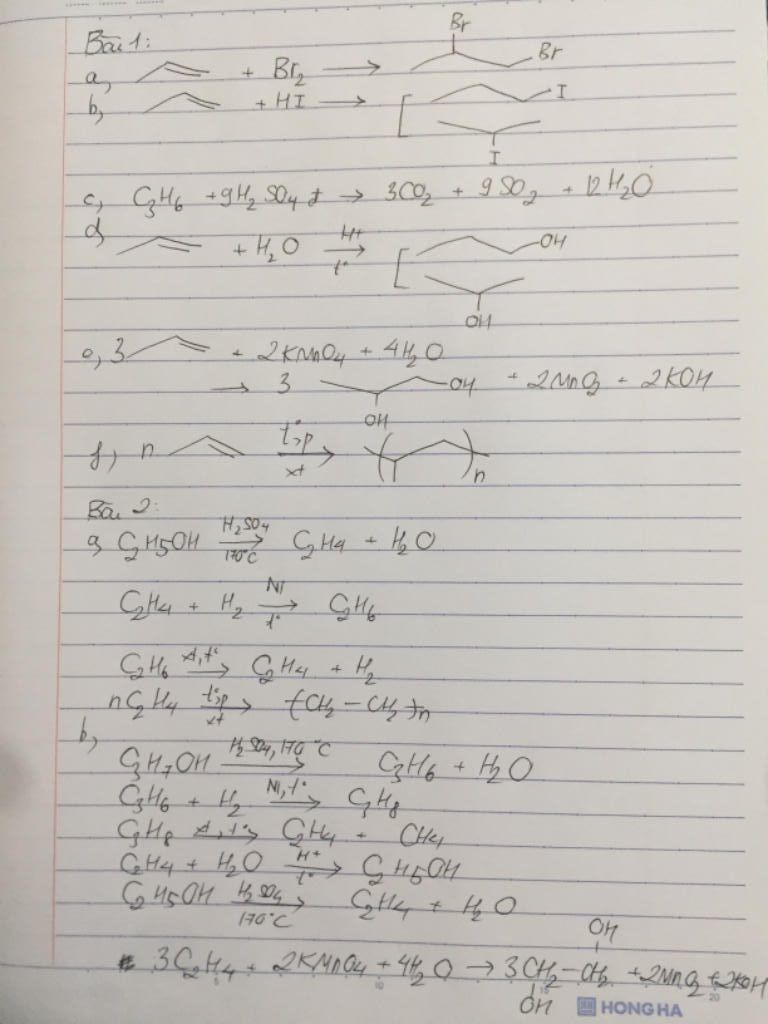 Bài 1:
Br
a, + Br₂ → Br
b, + HI → I
I
c, C₃H₆ + 9H₂SO₄ đ → 3CO₂ + 9SO₂ + 12H₂O
d, + H₂O H⁺ t° → OH
OH
e, 3 + 2KMnO₄ + 4H₂O
→ 3 OH + 2MnO₂ + 2KOH
OH
f, n t°,p xt → ( )n
Bài 2:
a, C₂H₅OH H₂SO₄ 170°C → C₂H₄ + H₂O
C₂H₄ + H₂ Ni t° → C₂H₆
C₂H₆ xt,t° → C₂H₄ + H₂
nC₂H₄ t°,p xt → (CH₂ – CH₂)n
b,
C₃H₇OH H₂SO₄, 170°C → C₃H₆ + H₂O
C₃H₆ + H₂ Ni,t° → C₃H₈
C₃H₈ xt,t° → C₂H₄ + CH₄
C₂H₄ + H₂O H⁺ t° → C₂H₅OH
C₂H₅OH H₂SO₄ 170°C → C₂H₄ + H₂O
OH
3C₂H₄ + 2KMnO₄ + 4H₂O → 3CH₂ – CH₂ + 2MnO₂ + 2KOH
OH
5 10 15 20
HONG HA